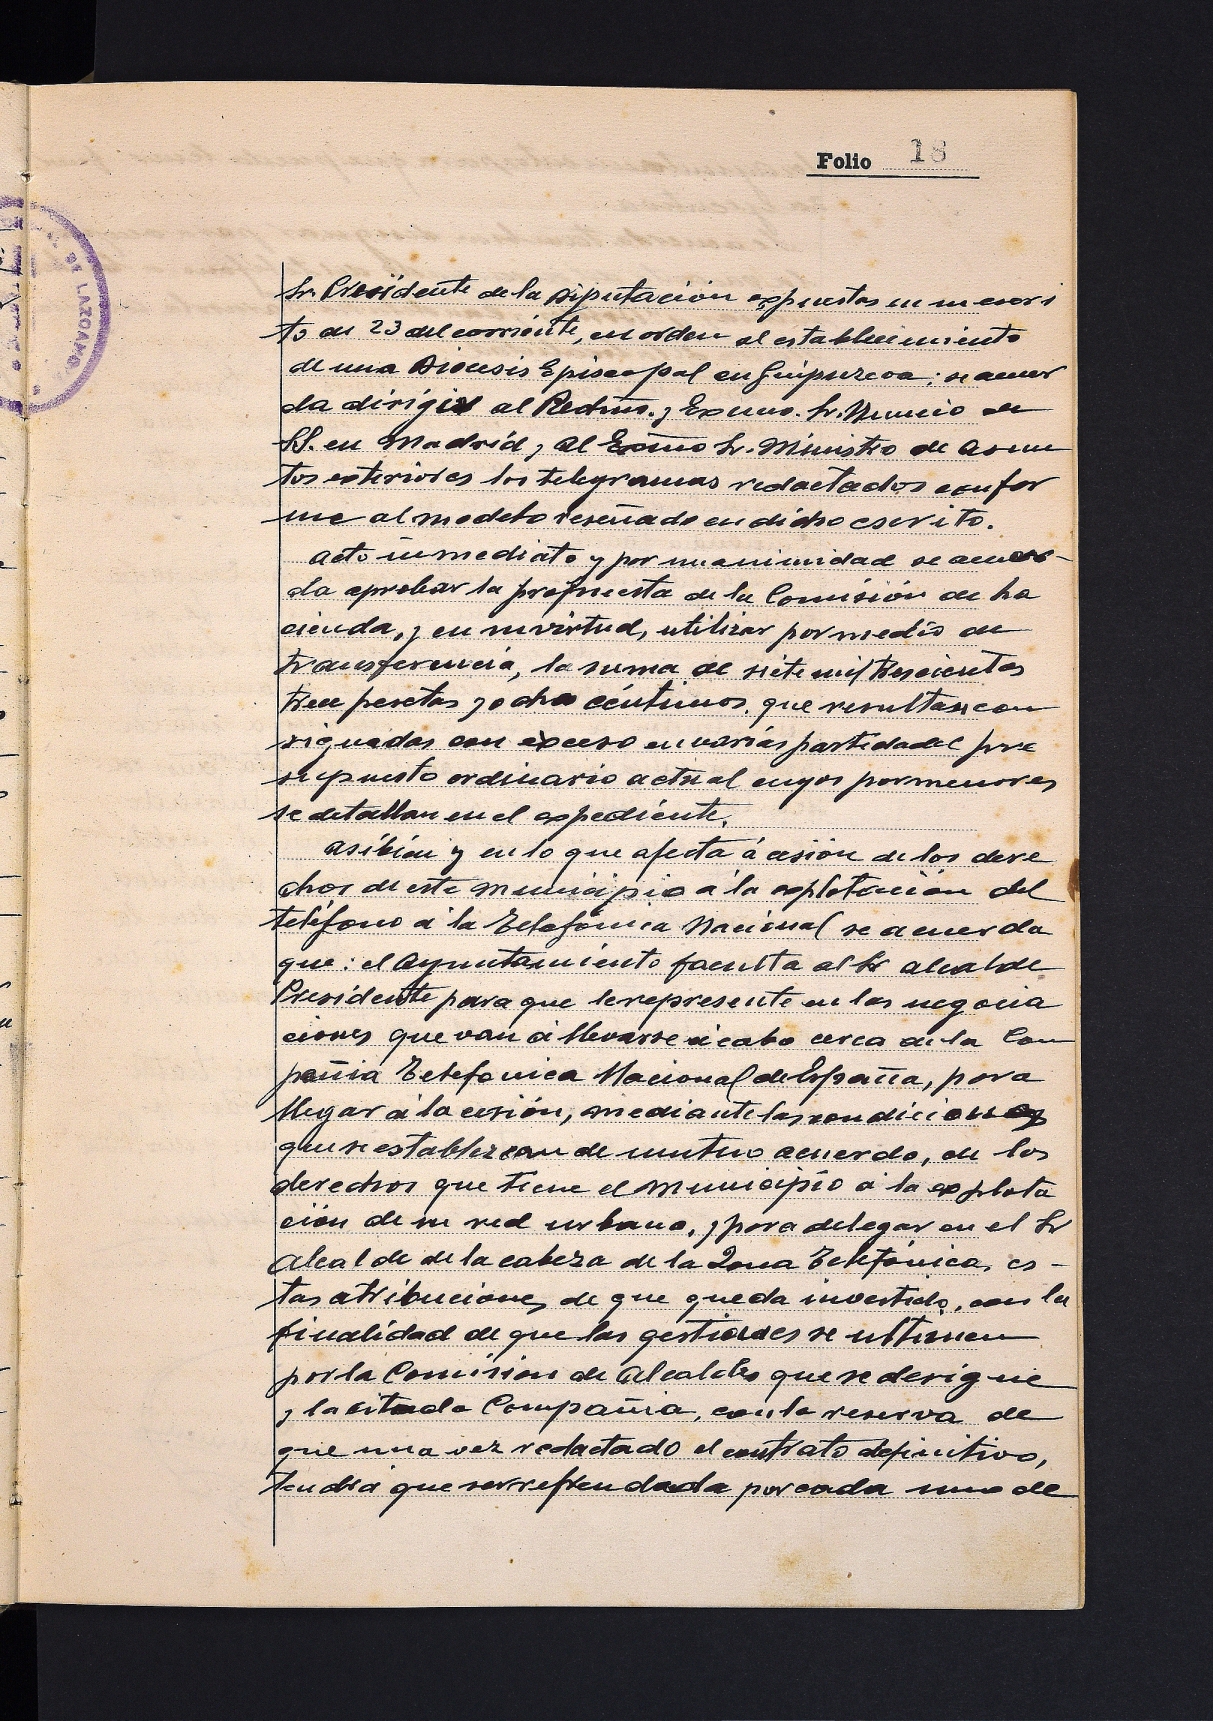 Folio 18
DE LAZCANO
Sr. Presidente de la Diputación expuestos en su escri
to de 23 del corriente, en orden al establecimiento
de una Diócesis Episcopal en Guipuzcoa; se acuer
da dirigir al Redmo. y Excmo. Sr. Nuncio de
SS. en Madrid y al Excmo Sr. Ministro de asun
tos exteriores los telegramas redactados confor
me al modelo reseñado en dicho escrito.
Acto inmediato y por unanimidad se acuer-
da aprobar la propuesta de la Comisión de ha
cienda, y en su virtud, utilizar por medio de
transferencia, la suma de siete mil trescientas
trece pesetas y ocho céntimos, que resultan con
signadas con exceso en varias partidas del pre
supuesto ordinario actual cuyos pormenores
se detallan en el expediente.
Asíbien y en lo que afecta á cesión de los dere
chos de este municipio á la explotación del
teléfono á la Telefónica Nacional se acuerda
que: el Ayuntamiento faculta al Sr alcalde
Presidente para que le represente en las negocia
ciones que van á llevarse á cabo cerca de la Com
pañia Telefonica Nacional de España, para
llegar á la cesión, mediante las condiciones
que se establezcan de mutuo acuerdo, de los
derechos que tiene el municipio á la explota
ción de su red urbana, y para delegar en el Sr
Alcalde de la cabeza de la Zona Telefónica, es-
tas atribuciones de que queda investido, con la
finalidad de que las gestiones se ultimen
por la Comision de Alcaldes que se designe
y la citada Compañia, con la reserva de
que una vez redactado el contrato definitivo,
tendrá que ser refrendada por cada uno de